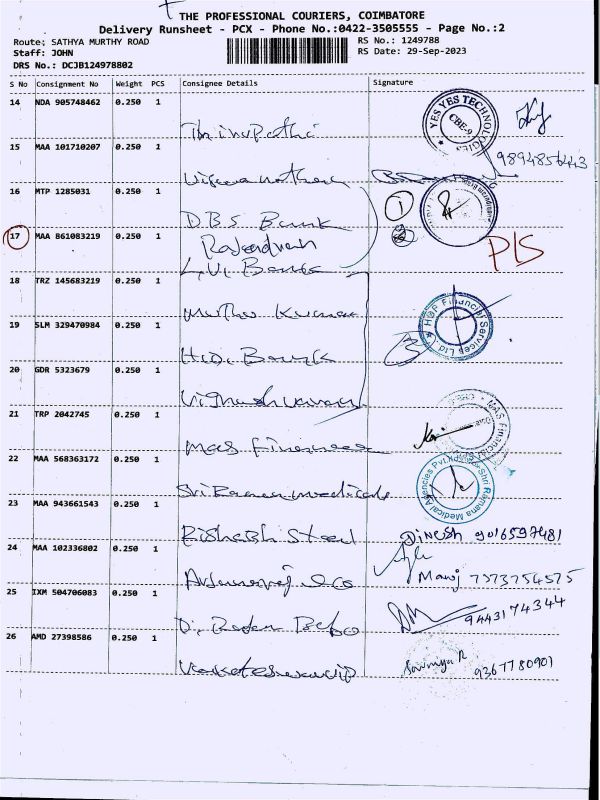 THE PROFESSIONAL COURIERS, COIMBATORE
Delivery Runsheet - PCX - Phone No.:0422-3505555 - Page No.:2
Route: SATHYA MURTHY ROAD
RS No.: 1249788
Staff: JOHN
RS Date: 29-Sep-2023
DRS No.: DCJB124978802
S No Consignment No Weight PCS Consignee Details Signature
14 NDA 905748462 0.250 1
Thirupathi
YES YES TECHNOLOGIES
CBE-9
15 MAA 101710207 0.250 1
9894856443
Viswanathan
16 MTP 1285031 0.250 1
D.B.S Bank
1
17 MAA 861083219 0.250 1
Rajendran
2
L.V. Bank
18 TRZ 145683219 0.250 1
Muthu Kumar
HDF Financial Services Ltd
19 SLM 329470984 0.250 1
3
20 GDR 5323679 0.250 1
Vigneshwaran
21 TRP 2042745 0.250 1
MAS Financial
Mas Finance
22 MAA 568363172 0.250 1
Sri Ramana Medical Agencies Pvt
Sri Ramana medicals
23 MAA 943661543 0.250 1
Rishabh Steel
Dinesh 9016597481
24 MAA 102336802 0.250 1
Manoj 7373754575
25 IXM 504706083 0.250 1
9443174344
26 AMD 27398586 0.250 1
Sowmiya R 9367780901